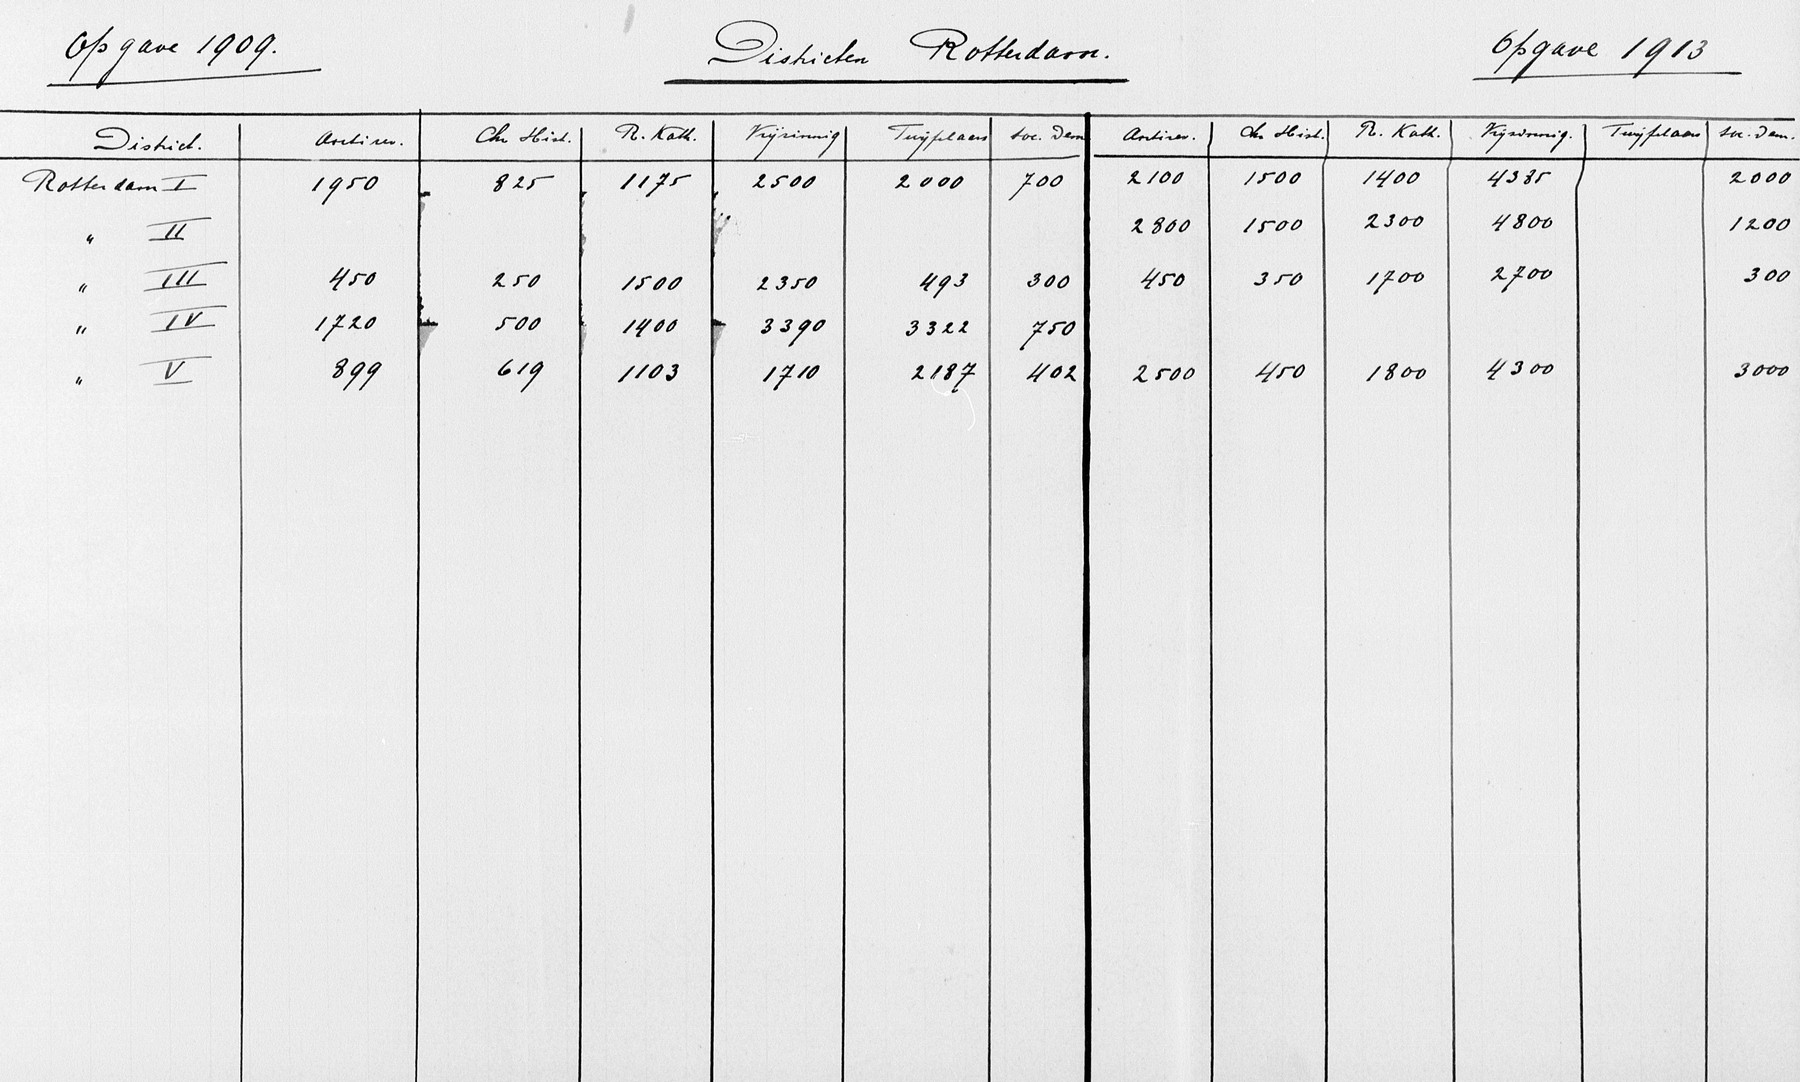 Opgave 1909. Districten Rotterdam. Opgave 1913
District. Antirev. Chr. Hist. R. Kath. Vrijzinnig Twijfelaars soc. Dem Antirev. Chr. Hist. R. Kath. Vrijzinnig. Twijfelaars soc. Dem.
Rotterdam I 1950 825 1175 2500 2000 700 2100 1500 1400 4385 2000
" II 2800 1500 2300 4800 1200
" III 450 250 1500 2350 493 300 450 350 1700 2700 300
" IV 1720 500 1400 3390 3322 750
" V 899 619 1103 1710 2187 402 2500 450 1800 4300 3000